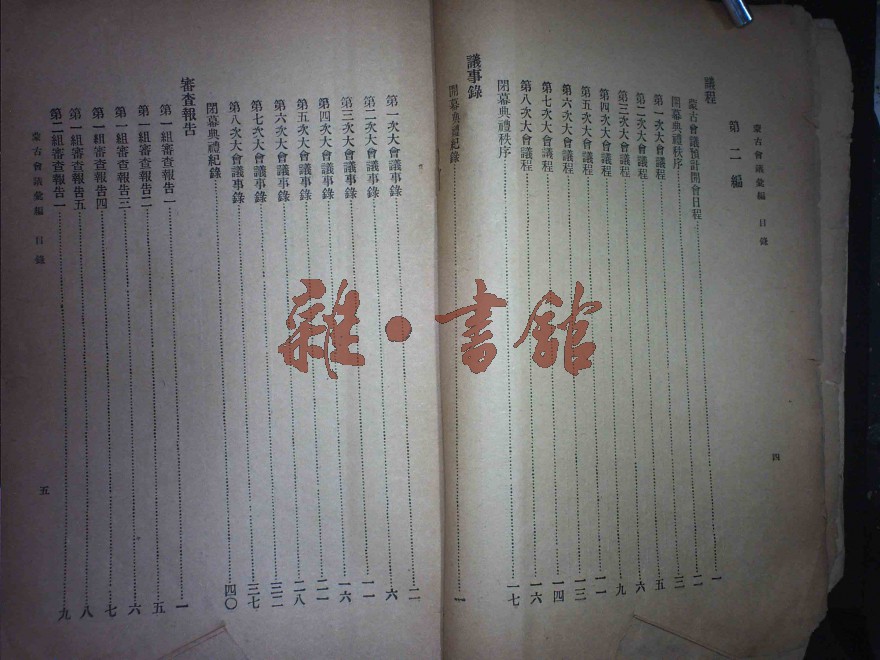 蒙古會議彙編 目錄 四
第二編
議程
蒙古會議預計開會日程 一
開幕典禮秩序 二
第一次大會議程 三
第二次大會議程 五
第三次大會議程 六
第四次大會議程 九
第五次大會議程 一一
第六次大會議程 一三
第七次大會議程 一四
第八次大會議程 一六
閉幕典禮秩序 一七
議事錄
開幕典禮紀錄 一
第一次大會議事錄 二
第二次大會議事錄 六
第三次大會議事錄 一一
第四次大會議事錄 一六
第五次大會議事錄 二一
第六次大會議事錄 二八
第七次大會議事錄 三二
第八次大會議事錄 三七
閉幕典禮紀錄 四〇
審查報告
第一組審查報告一 一
第一組審查報告二 五
第一組審查報告三 六
第一組審查報告四 七
第一組審查報告五 八
第二組審查報告一 九
蒙古會議彙編 目錄 五
雜·書館